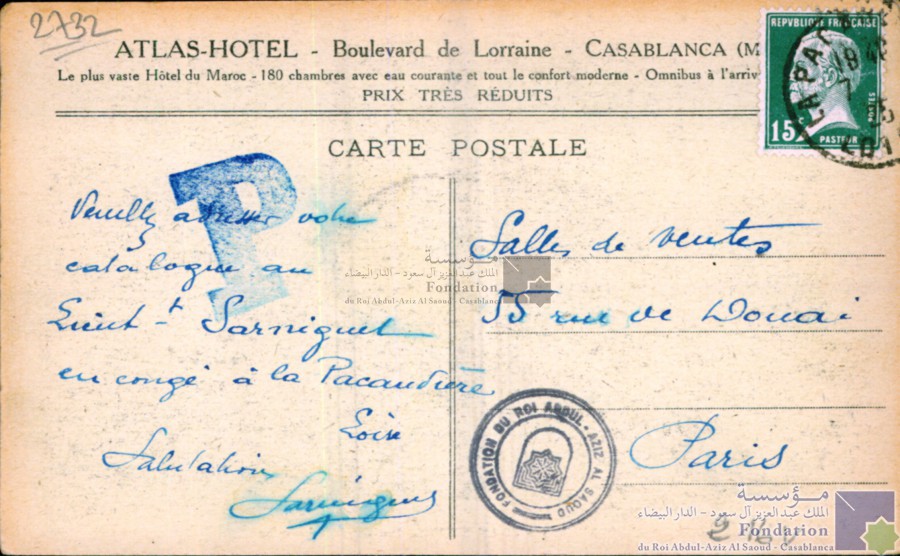 2732
ATLAS-HOTEL - Boulevard de Lorraine - CASABLANCA (M
Le plus vaste Hôtel du Maroc - 180 chambres avec eau courante et tout le confort moderne - Omnibus à l'arriv
PRIX TRÈS RÉDUITS
REPUBLIQUE FRANÇAISE
15c
POSTES
PASTEUR
LA PAC
18
7
LOI
CARTE POSTALE
P
Veuillez adresser votre
catalogue au
Lieut-t Sarniguet
en congé à la Pacaudière
Loire
Salutation
Sarniguet
Salles de ventes
55 rue de Douai
Paris
مؤسسة
الملك عبد العزيز آل سعود - الدار البيضاء
Fondation
du Roi Abdul-Aziz Al Saoud - Casablanca
FONDATION DU ROI ABDUL-AZIZ AL SAOUD
مؤسسة
الملك عبد العزيز آل سعود - الدار البيضاء
Fondation
du Roi Abdul-Aziz Al Saoud - Casablanca